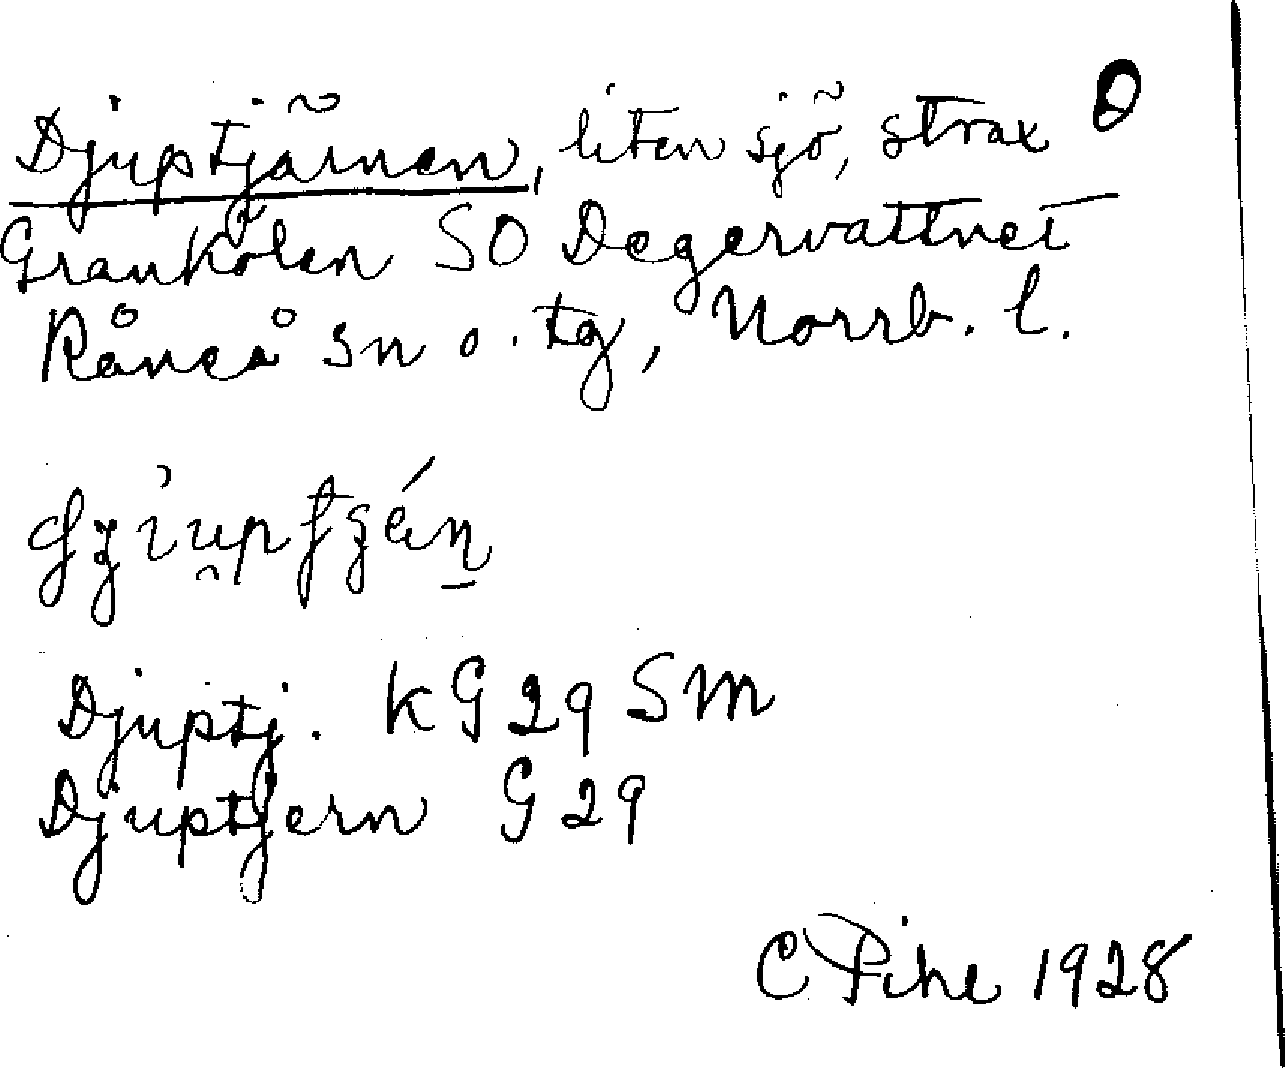 Djuptjärnen, liten sjö, strax O
Grankölen SO Degervattnet
Råneå sn o. tg, Norrb. l.
Djuptj. KG 29 SM
Djuptjern G 29
C Pihl 1928